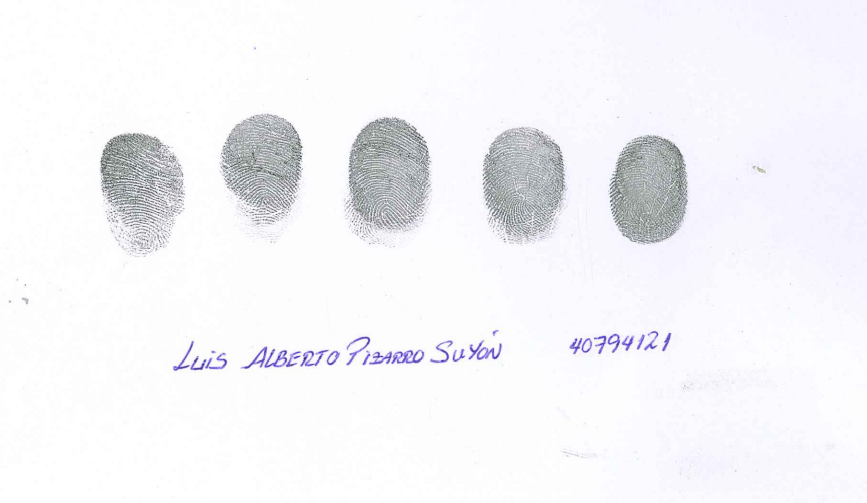 Luis ALBERTO PIZARRO SUYÓN 40794121